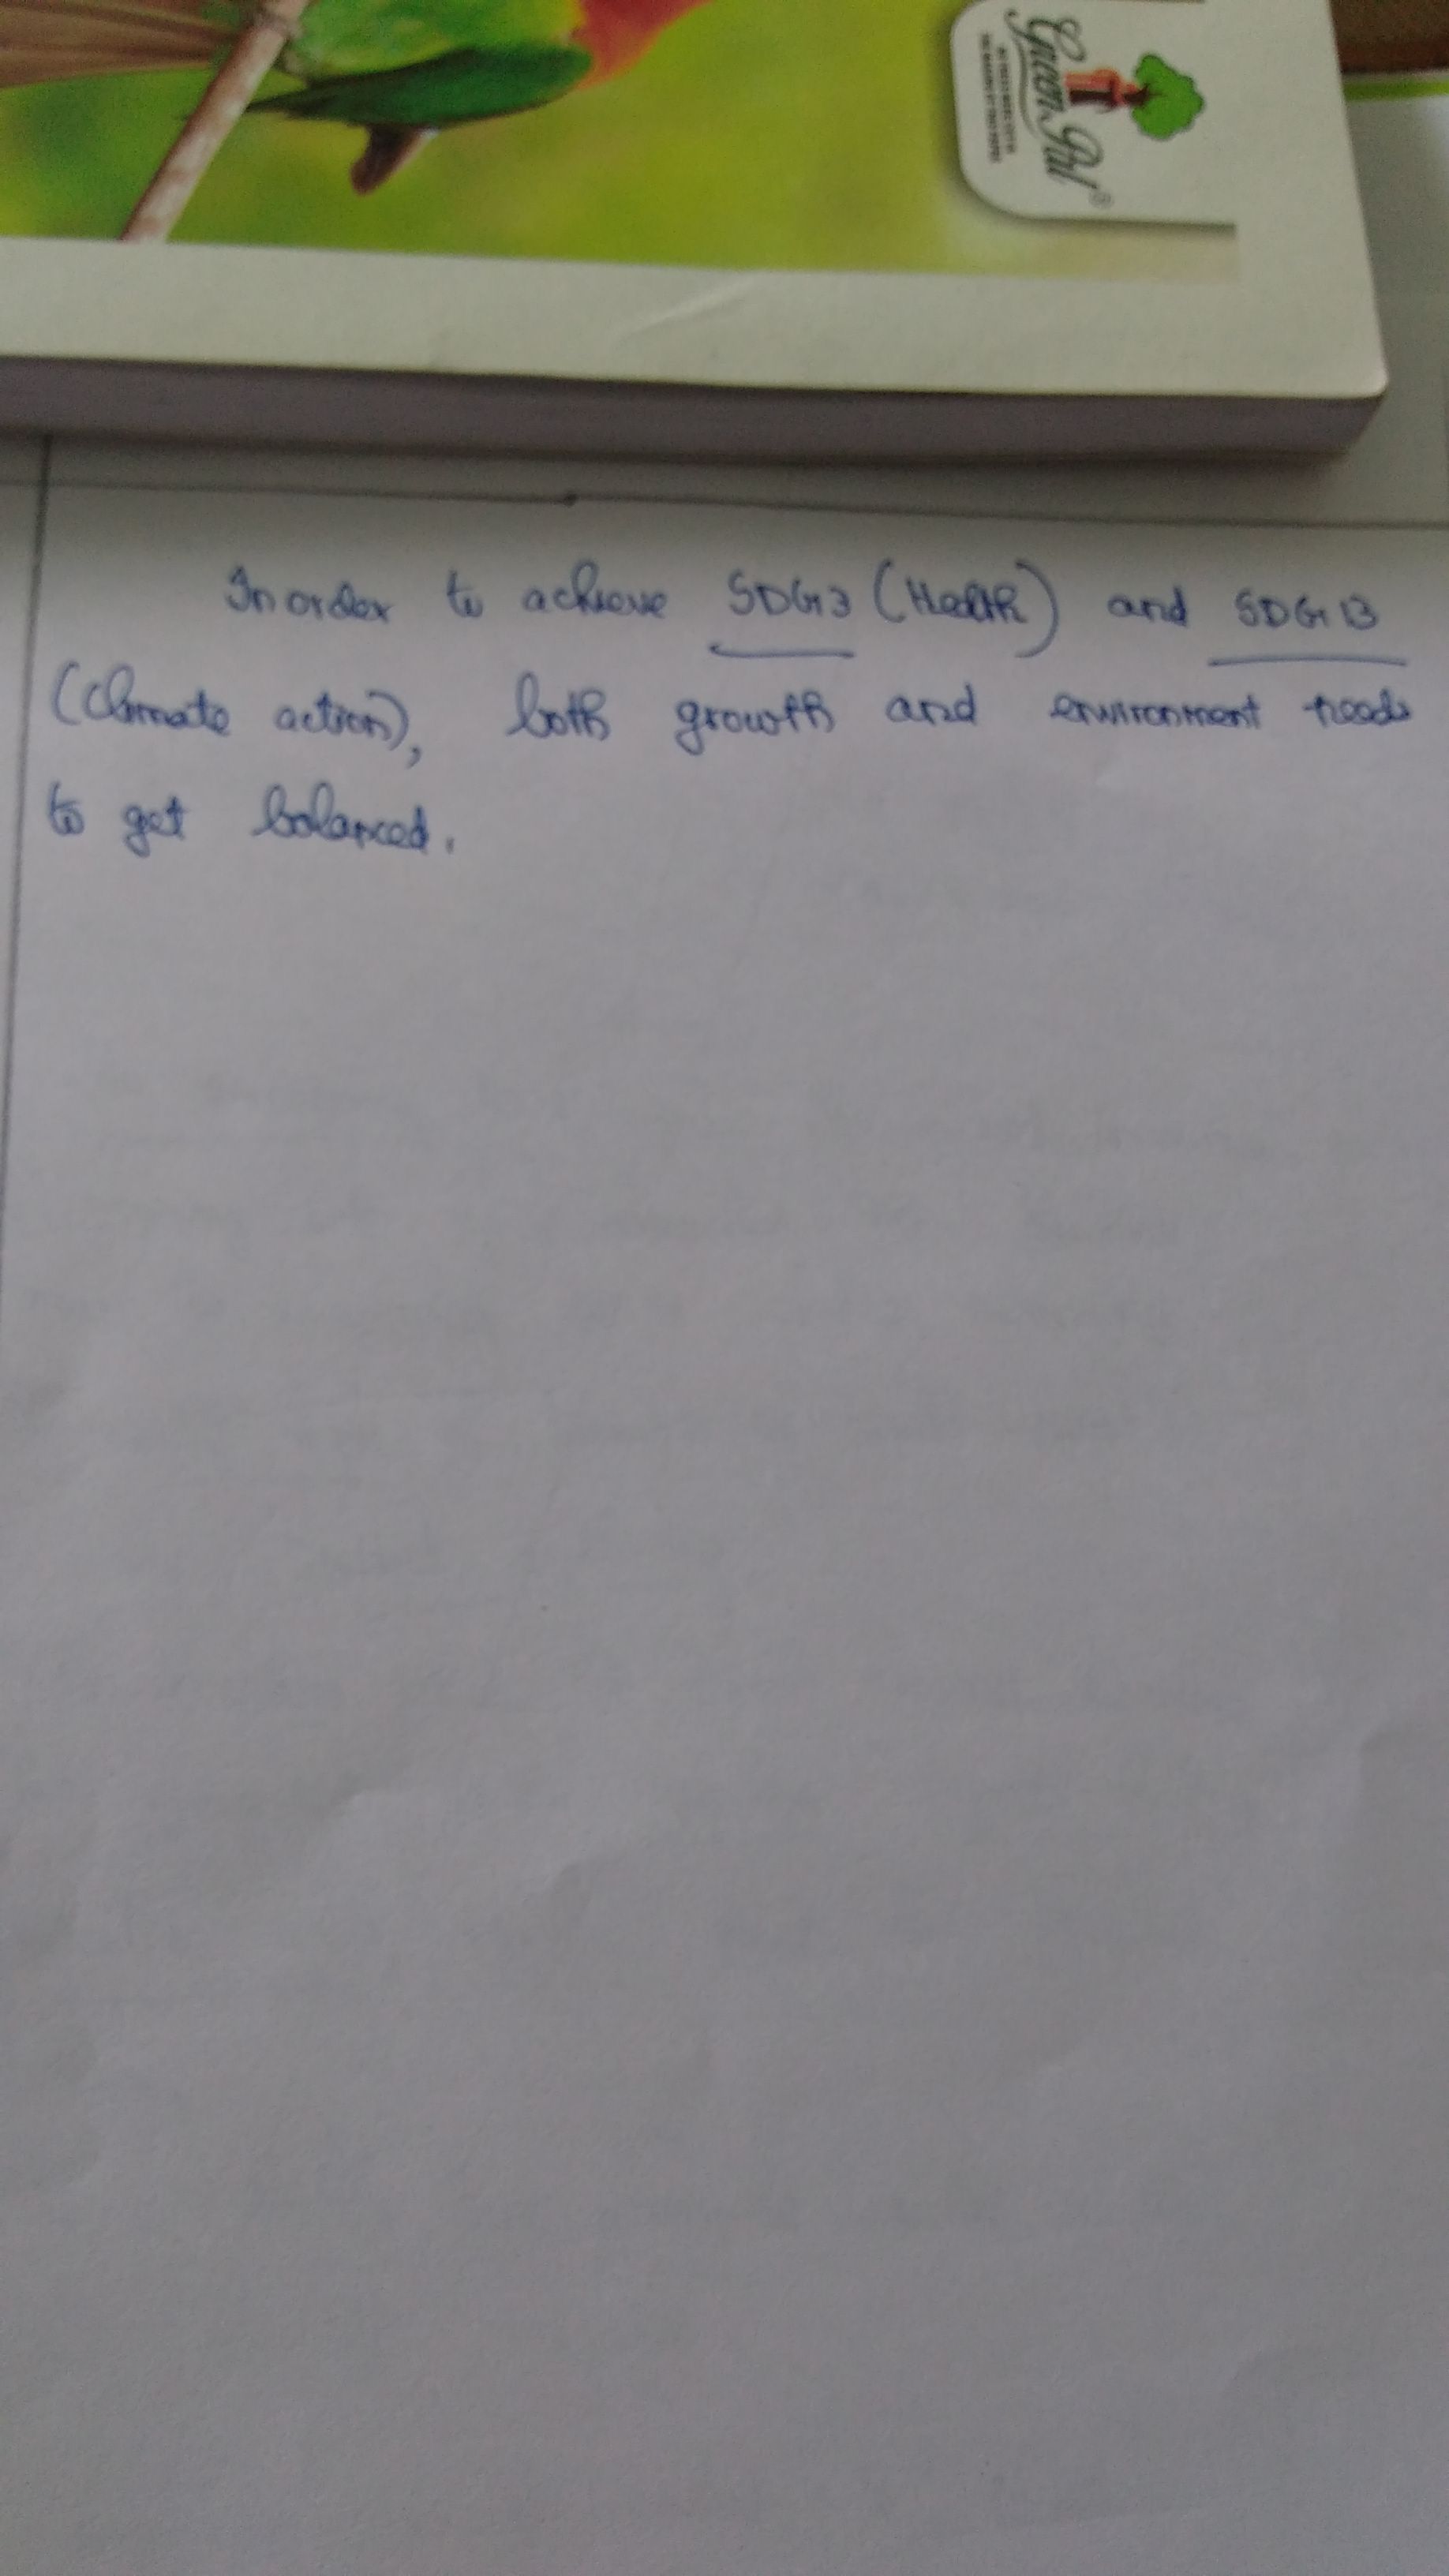 Green Pal®
In order to achieve SDG3 (Health) and SDG 13
(Climate action), both growth and environment needs
to get balanced.